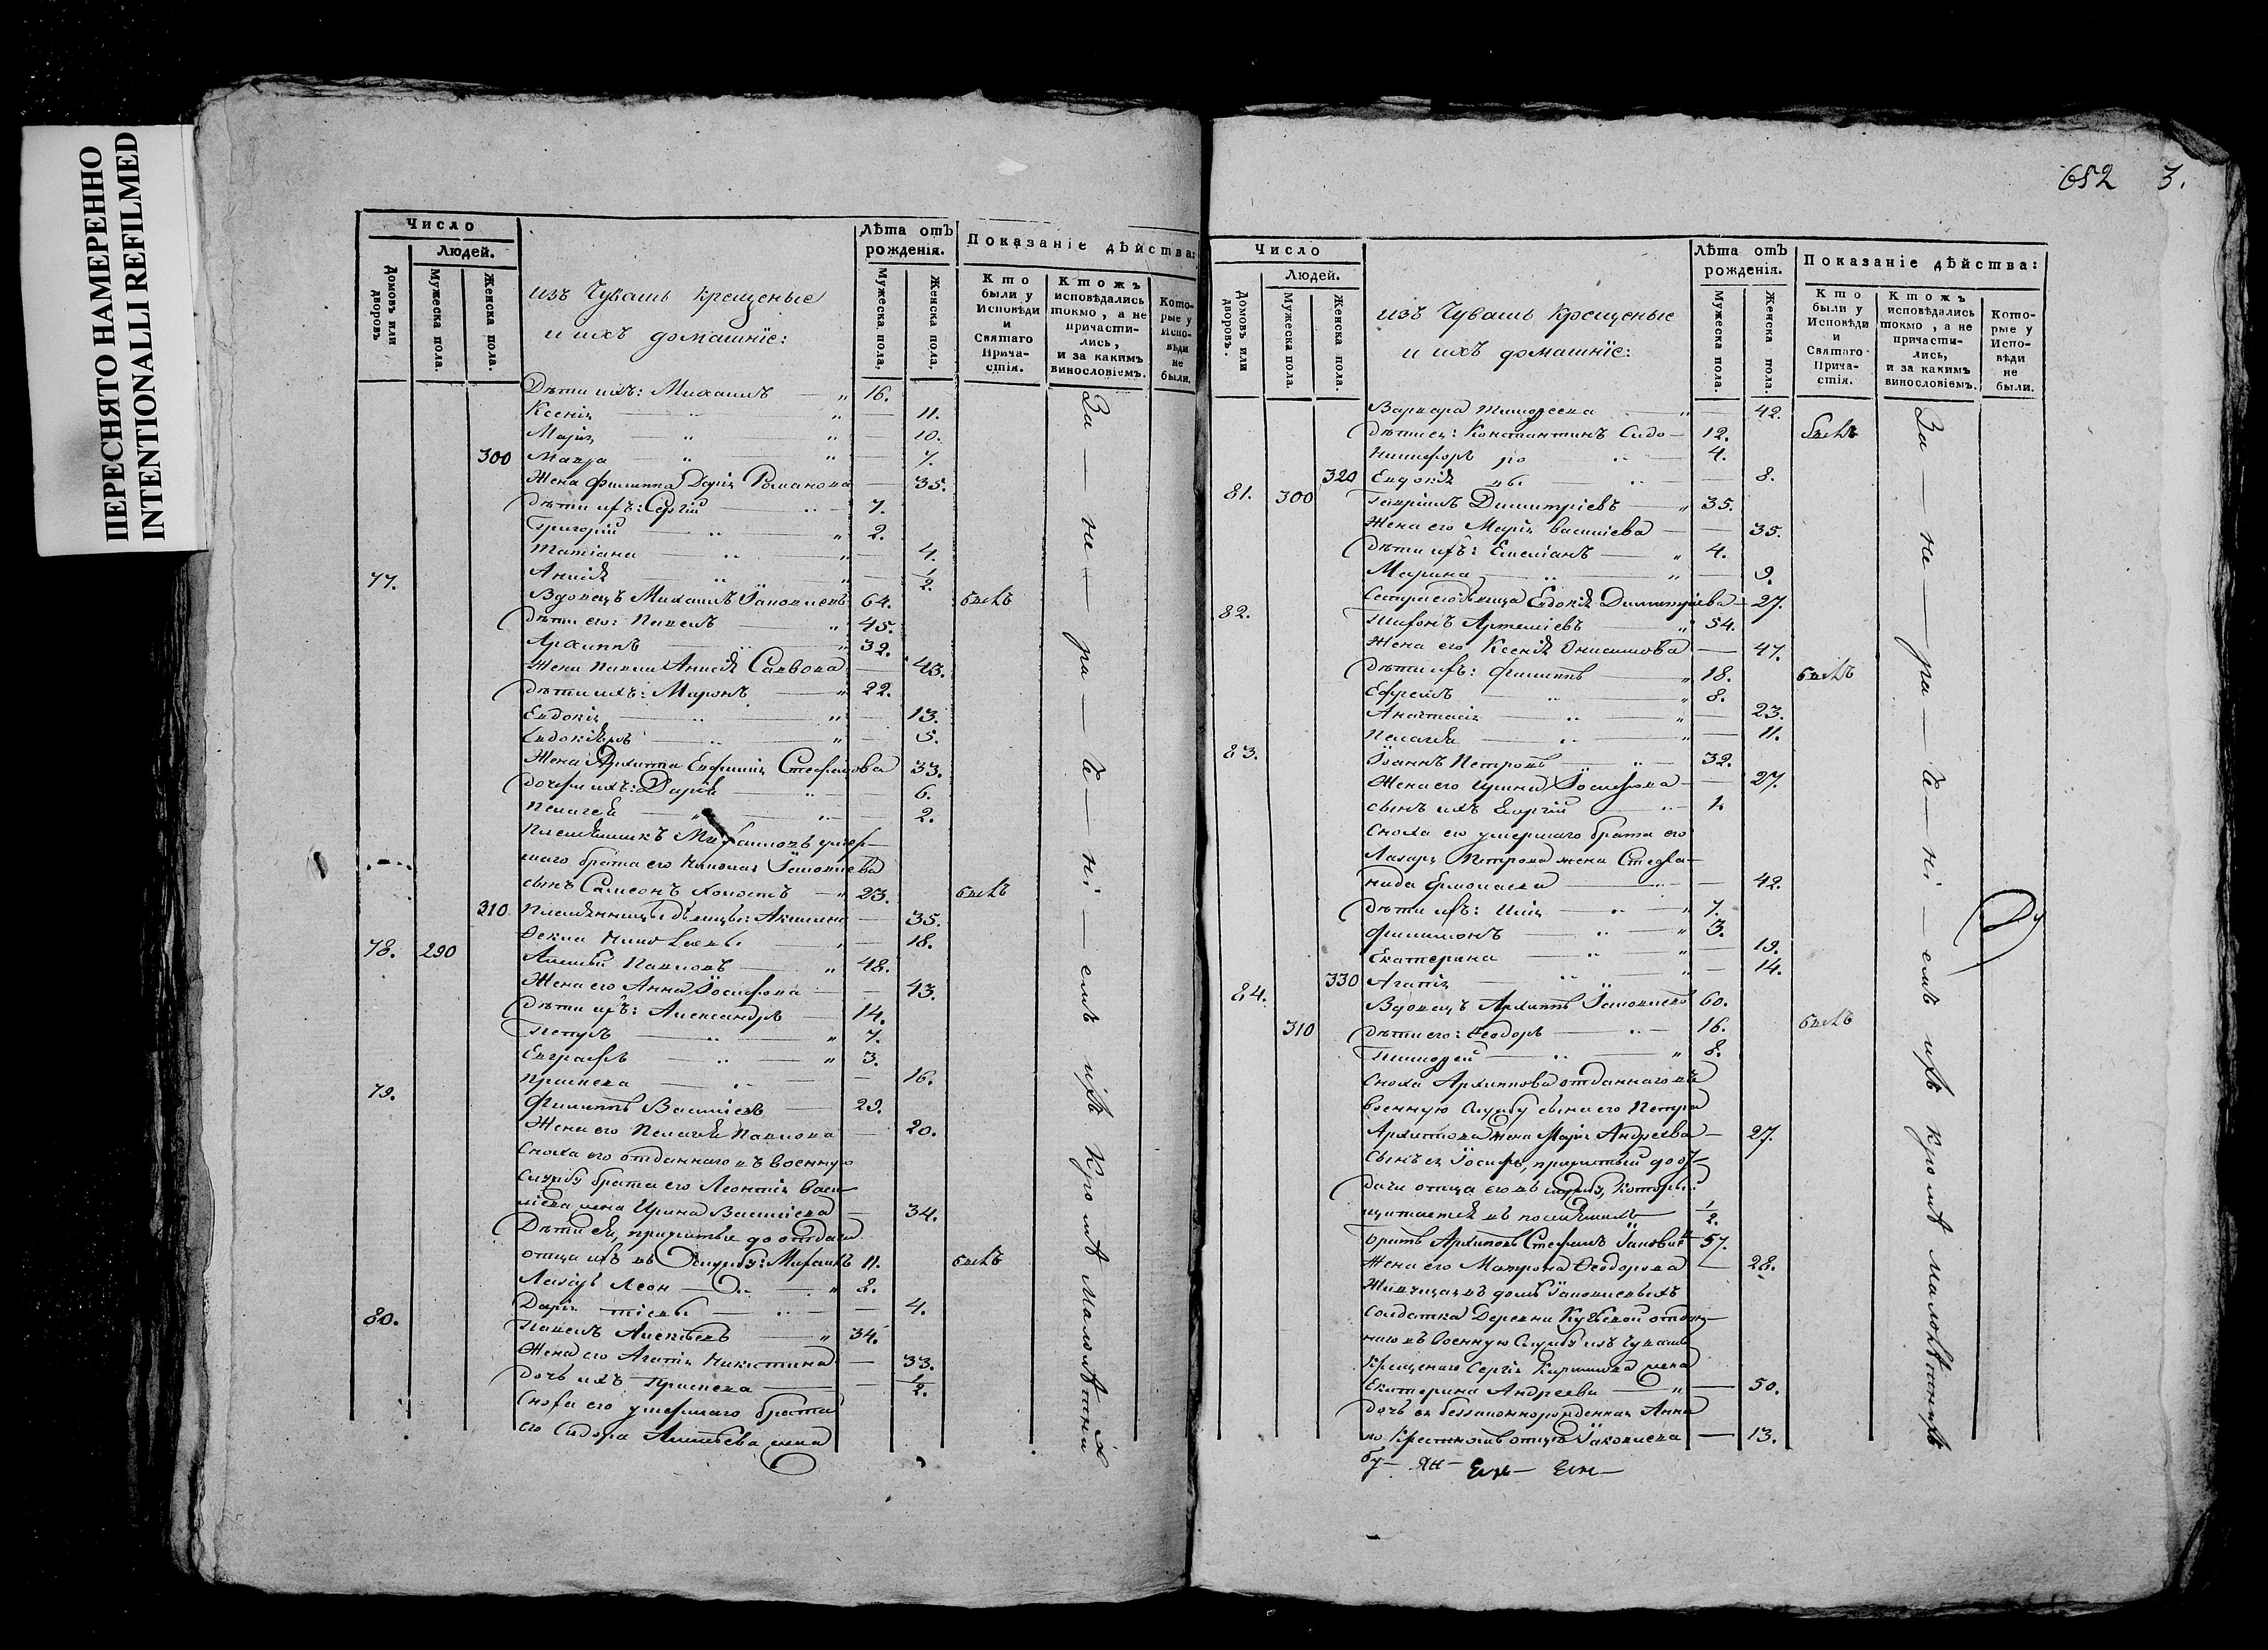 ПЕРЕСНЯТО НАМЕРЕННО
INTENTIONALLI REFILMED
Число
Людей.
Домовъ или дворовъ
Мужеска пола.
Женска пола.
изъ Чувашъ крещеные
и ихъ домашніе:
Лѣта отъ рожденія.
Мужеска пола.
Женска пола.
Показаніе дѣйства:
Кто были у Исповѣди и Святаго Прича-стія.
Ктожъ исповѣдались токмо, а не причасти-лись, и за какимъ винословіемъ.
Кото-рые у Испо-вѣди не были.
Дѣти ихъ: Михаилъ — 16.
Ксенія — 11.
Марія — 10.
300 Мавра — 7.
Жена Филиппа Дарія Романова — 35.
Дѣти ихъ: Сергій — 7.
Григорій — 2.
Татіана — 4.
— 1/2.
77. Вдовецъ Михаилъ Іаковлевъ 64. былъ
Дѣти его: Павелъ — 45.
Архиппъ — 32.
Жена Павла Анисія Саввова — 43.
Дѣти ихъ: Миронъ — 22.
Евдокія — 13.
— 5.
Жена Архиппа Евфимія Стефанова 33.
Дочери ихъ: Дарія — 6.
Пелагея — 2.
Племянникъ Михаиловъ умер-
шаго брата его Николая Іаковлева
сынъ Самсонъ холостъ — 23. былъ
310. Племянницы дѣвицы: Акилина — 35.
Фекла — 18.
78. 290 Алексѣй Павловъ — 48.
Жена его Анна Іосифова — 43.
Дѣти ихъ: Александръ — 14.
Петръ — 7.
Евграфъ — 3.
— 16.
79. Филиппъ Васильевъ — 29.
Жена его Пелагея Павлова — 20.
Сноха его отданнаго въ военную
Службу брата его Леонтія Васи-
льева жена Ирина Васильева — 34.
Дѣти ея, прижитые до отдачи
отца ихъ въ Службу: Михаилъ 11. былъ
Лазарь Леон — 8.
Дарія тіевы — 4.
80. Павелъ Алексѣевъ — 34.
Жена его Агапія Никитина — 33.
Дочь ихъ — 1/2.
Сноха его умершаго брата
его Сидора Алексѣева жена
За — не — ра — че — ні — емъ ихъ кромѣ малолѣтнихъ
652 3.
Число
Людей.
Домовъ или дворовъ.
Мужеска пола.
Женска пола.
изъ Чувашъ крещеные
и ихъ домашніе:
Лѣта отъ рожденія.
Мужеска пола.
Женска пола.
Показаніе дѣйства:
Кто были у Исповѣди и Святаго Прича-стія.
Ктожъ исповѣдались токмо, а не причасти-лись, и за какимъ винословіемъ.
Кото-рые у Испо-вѣди не были.
Варвара Тимофеева — 42.
Дѣти ея: Константинъ Сидо — 12. былъ
Никифоръ ро — 4.
320 Евдокія вы — 8.
81. 300 Гавріилъ Димитріевъ — 35.
Жена его Марія Васильева — 35.
Дѣти ихъ: Емеліанъ — 4.
Марина — 9.
Сестра его дѣвица Евдокія Димитріева — 27.
82. Артеміевъ — 54.
Жена его Ксенія Онисимова — 47.
Дѣти ихъ: Филиппъ — 18. былъ
Ефремъ — 8.
Анастасія — 23.
Пелагея — 11.
83. Іоаннъ Петровъ — 32.
Жена его Ирина Іосифова — 27.
сынъ ихъ Георгій — 1.
Сноха его умершаго брата его
Лазаря Петрова жена Стефа-
нида Ермолаева — 42.
Дѣти ихъ: Илія — 7.
Филимонъ — 3.
Екатерина — 19.
330 Агапія — 14.
84. Вдовецъ Архиппъ Іаковлевъ 60.
310 Дѣти его: Феодоръ — 16. былъ
Тимофей — 8.
Сноха Архиппова отданнаго въ
военную Службу сына его Петра
Архиппова жена Марія Андреева — 27.
Сынъ ея Іосифъ, прижитый до от-
дачи отца его въ службу, который
щитается въ — 1/2.
Братъ Архиповъ Стефанъ Іаковлевъ 57.
Жена его Матрона Феодорова — 28.
Живущая въ домѣ Іаковлевыхъ
солдатка Деревни отдан-
наго въ военную Службу изъ Чувашъ
Крещенаго Сергія Кириллова жена
Екатерина Андреева — 50.
Дочь ея беззаконнорожденная Анна
по Крестному отцу Іаковлева — 13.
За — не — ра — че — ні — емъ ихъ кромѣ малолѣтнихъ